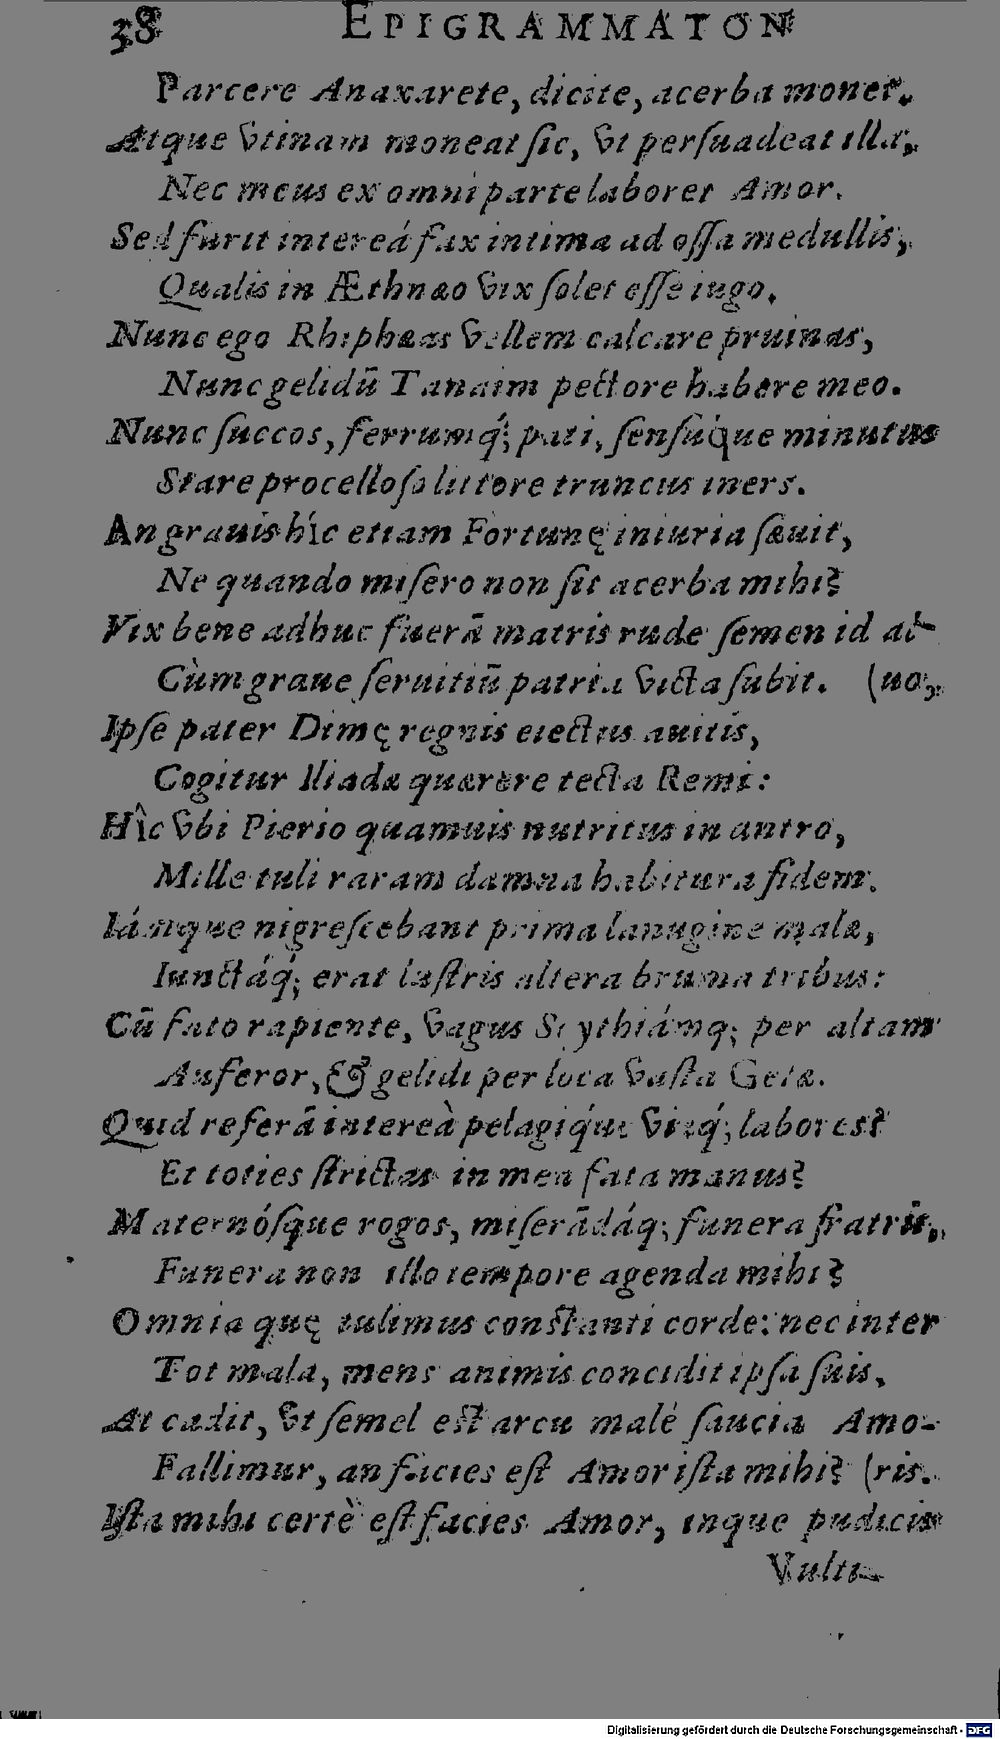 38 EPIGRAMMATON
Parcere Anaxarete, dicite, acerba monet.
Atque vtinam moneat ſic, vt perſuadeat illa,
Nec meus ex omni parte laboret Amor.
Sed furit intereá fax intima ad oſſa medullis,
Qualis in Æthnæo vix ſolet eſſe iugo.
Nunc ego Rhiphæas vellem calcare pruinas,
Nunc gelidū Tanaim pectore habere meo.
Nunc ſuccos, ferrumq́; pati, ſenſuq́ue minutus
Stare procelloſo littore truncus iners.
An grauis híc etiam Fortunę iniuria ſæuit,
Ne quando miſero non ſit acerba mihi?
Vix bene adhuc fuerā matris rude ſemen id al-
Cùm graue ſeruitiū patria victa ſubit. (uo,
Ipſe pater Dimę regnis eiectus auitis,
Cogitur Iliadæ quærere tecta Remi:
Hîc vbi Pierio quamuis nutritus in antro,
Mille tuli raram damna habitura fidem.
Iámque nigreſcebant prima lanugine malæ,
Iunctáq́; erat luſtris altera bruma tribus:
Cū fato rapiente, vagus Scythiámq; per altam
Auferor, & gelidi per loca vaſta Getæ.
Quid referā intereà pelagiq́ue viæq́; labores?
Et toties ſtrictas in mea fata manus?
Maternóſque rogos, miſerādáq; funera fratrū,
Funera non illo tempore agenda mihi?
Omnia quę tulimus conſtanti corde: nec inter
Tot mala, mens animis concidit ipſa ſuis.
At cadit, vt ſemel eſt arcu malè ſaucia Amo-
Fallimur, an facies eſt Amor iſta mihi? (ris.
Iſta mihi certè eſt facies Amor, inque pudicis
Vulti-
Digitalisierung gefördert durch die Deutsche Forschungsgemeinschaft - DFG